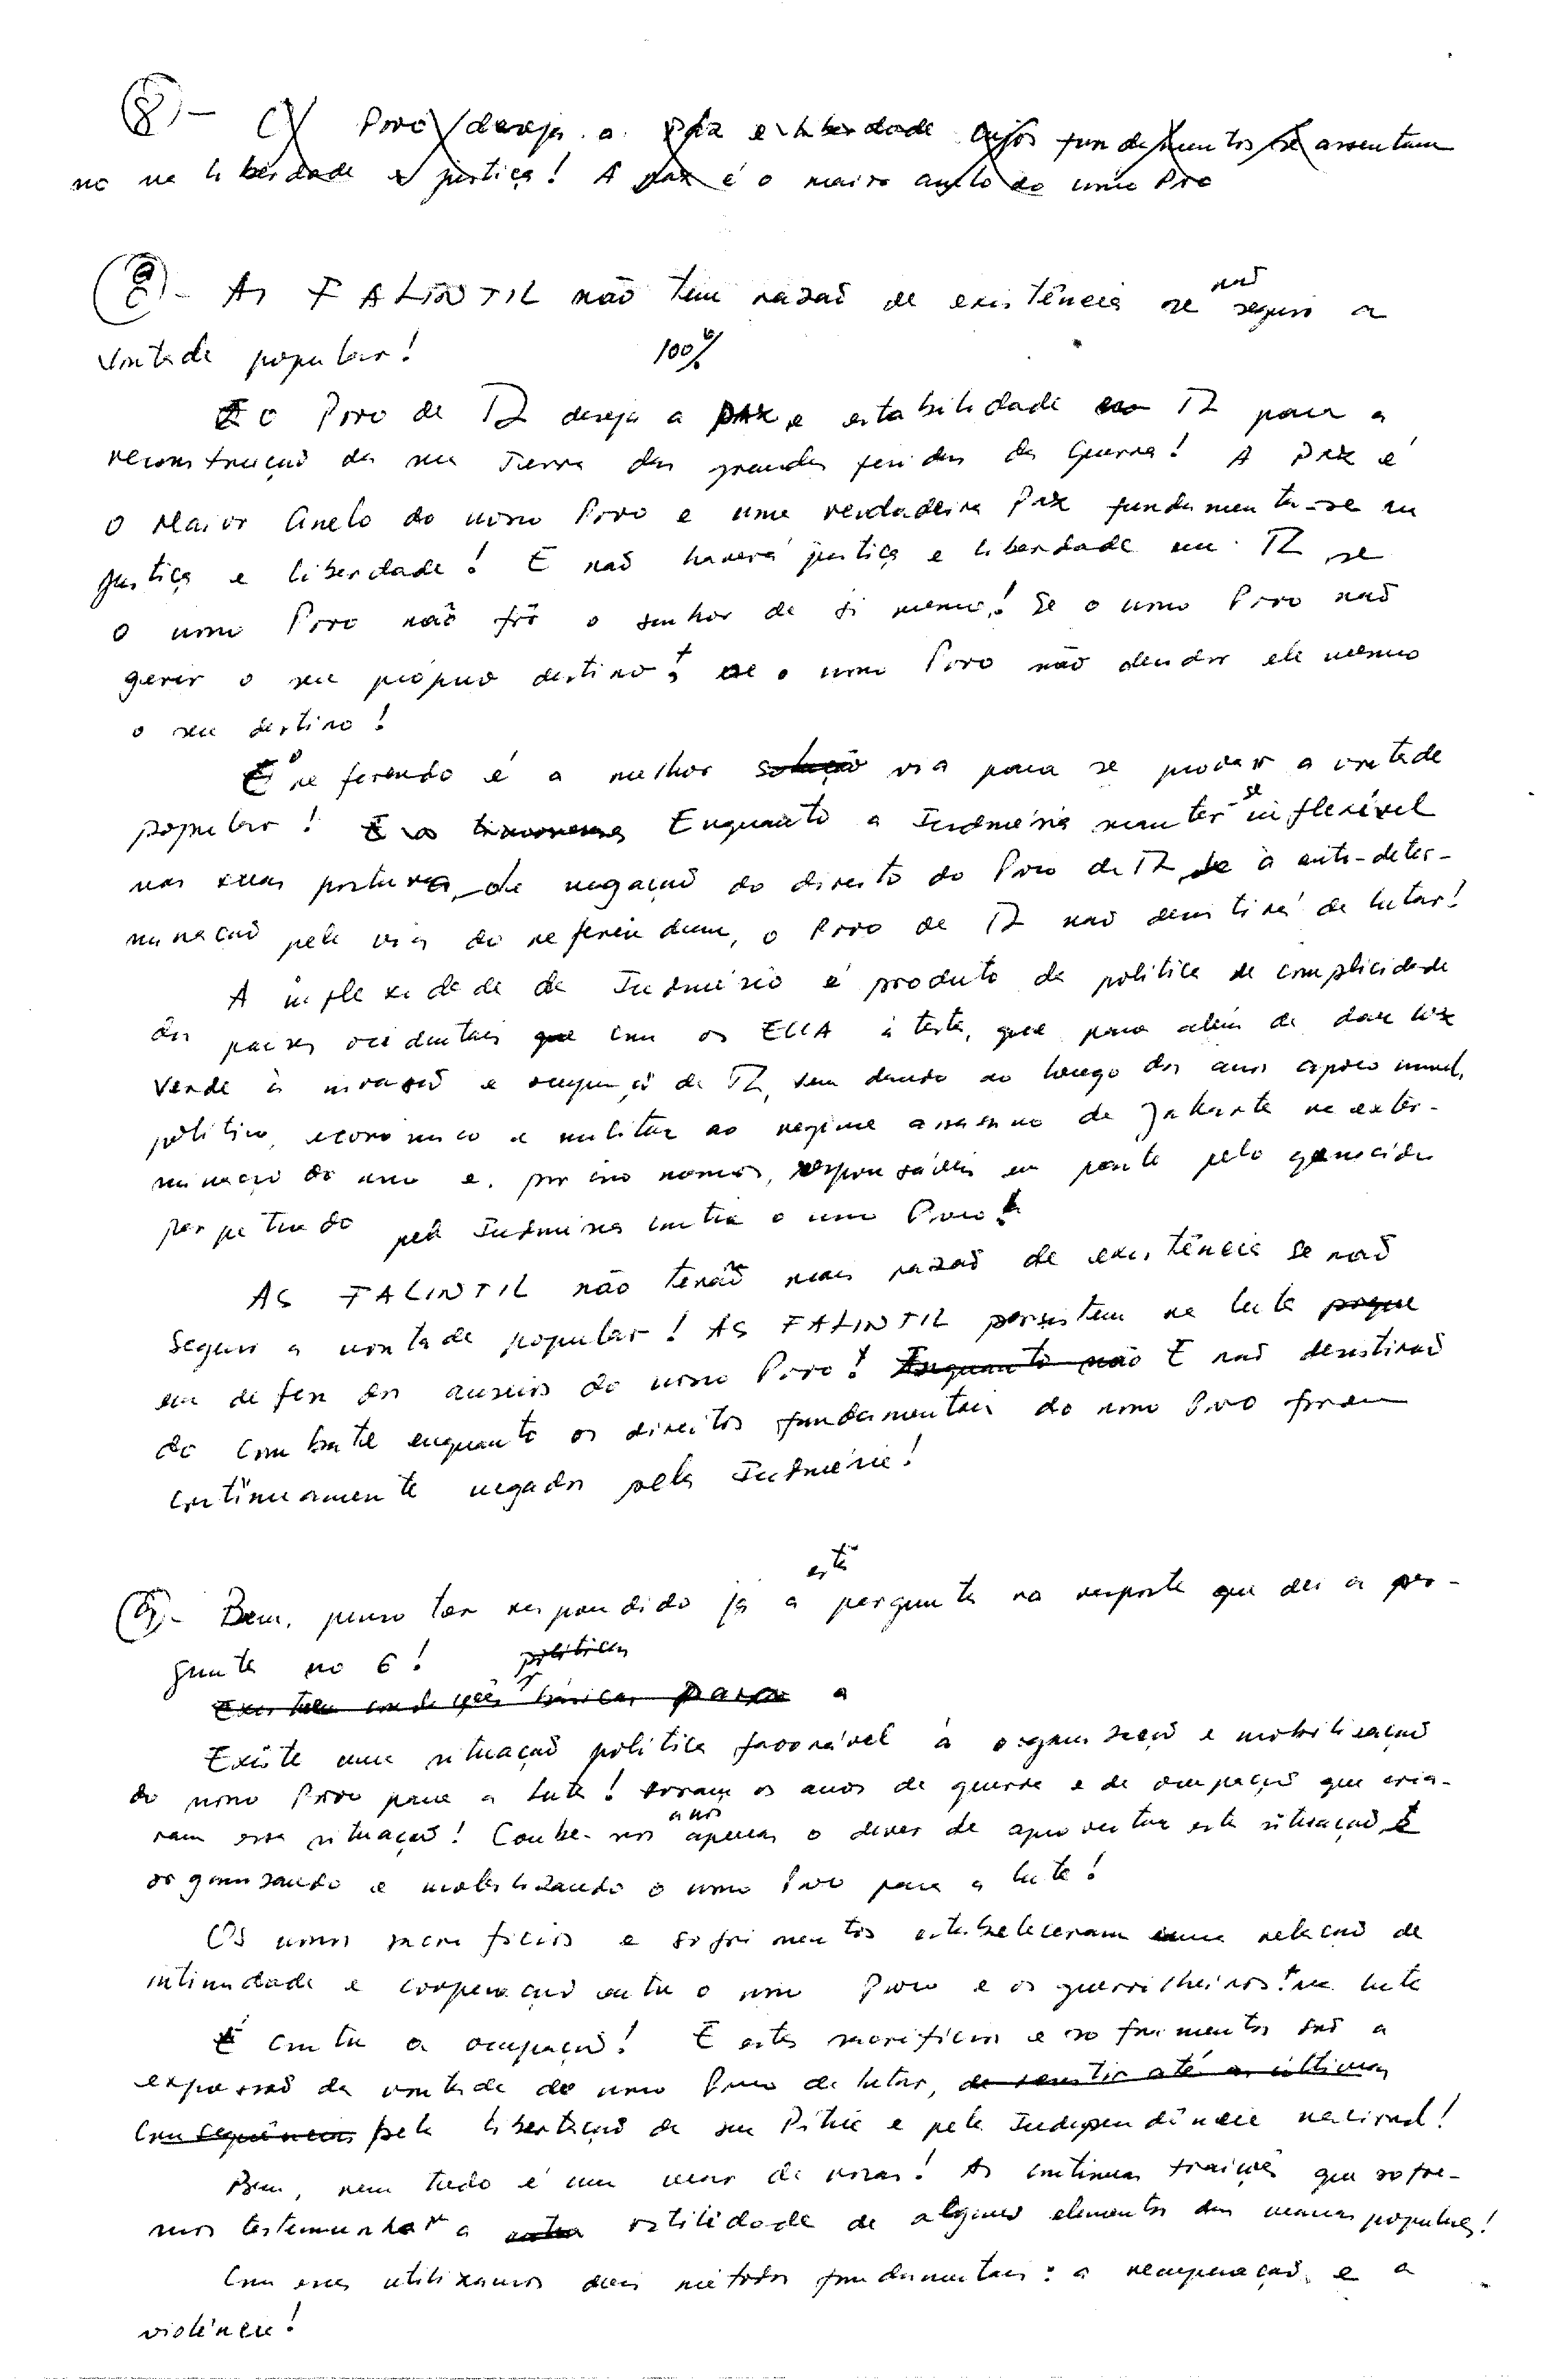 (8) - O Povo deseja a paz e liberdade cujos fundamentos se assentam
no na liberdade e justiça! A paz é o maior anelo do nosso Povo
(8) - As FALINTIL não tem razaõ de existência se naõ seguir a
vontade popular! 100%
E o Povo de TL deseja a paz e estabilidade em TL para a
reconstruçaõ da sua Terra das grandes feridas da Guerra! A Paz é
o Maior Anelo do nosso Povo e uma verdadeira Paz fundamenta-se na
justiça e liberdade! E naõ haverá justiça e liberdade em TL se
o nosso Povo não fôr o senhor de si mesmo! Se o nosso Povo naõ
gerir o seu próprio destino! se o nosso Povo não decidir ele mesmo
o seu destino!
E o referendo é a melhor solução via para se provar a vontade
popular! E os timorenses Enquanto a Indonésia manter-se inflexível
nas suas posturas de negaçaõ do direito do Povo de TL de à auto-deter-
minaçaõ pela via do referendum, o Povo de TL naõ desistirá de lutar!
A inflexidade da Indonésia é produto da politica de complicidade
dos paises ocidentais que com os EUA à testa, que para além de dar luz
verde à invasaõ e ocupaçaõ de TL, tem dando ao longo dos anos apoio moral,
politico, económico e militar ao regime assassino de Jakarta na exter-
minaçaõ do nosso e, por isso mesmo, responsáveis em parte pelo genocidio
perpetuado pela Indonésia contra o nosso Povo!
AS FALINTIL não teraõ mais razaõ de existência se naõ
seguir a vontade popular! AS FALINTIL persistem na luta porque
em defesa dos anseios do nosso Povo! Enquanto não E naõ desistiraõ
do combate enquanto os direitos fundamentais do nosso Povo forem
continuamente negados pela Indonésia!
(9) - Bem, penso ter respondido já a esta pergunta na resposta que dei a per-
gunta no 6! politicas
Existem condições básicas para a
Existe uma situaçaõ politica favorável à organizaçaõ e mobilizaçaõ
do nosso Povo para a luta! Foram os anos de guerra e de ocupaçaõ que cria-
ram essa situaçaõ! Coube-nos a nós apenas o dever de aproveitar esta situaçaõ E
organizando e mobilizando o nosso Povo para a luta!
Os nossos sacrificios e sofrimentos estabeleceram uma relaçaõ de
intimidade e cooperaçaõ entre o nosso Povo e os guerrilheiros! na luta
É contra a ocupaçaõ! E estes sacrificios e sofrimentos saõ a
expressaõ da vontade do nosso Povo de lutar, de resistir até as últimas
consequências pela libertaçaõ da sua Pátria e pela Independência nacional!
Bem, nem tudo é um mar de rosas! As continuas traições que sofre-
mos testemunhar a hostilidade de alguns elementos das massas populares!
Com esses utilizamos dois métodos fundamentais: a recuperaçaõ e a
violência!